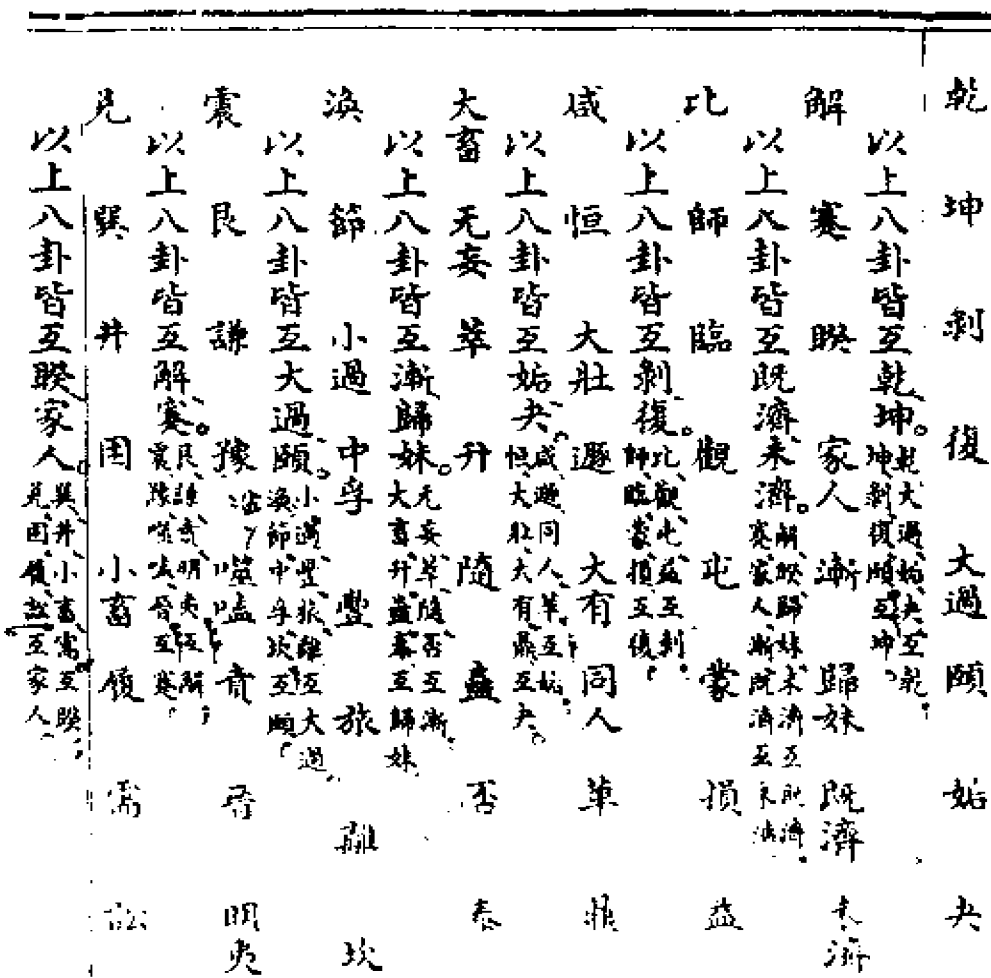 乾 坤 剥 復 大過 頤 姤 夬
以上八卦皆互乾坤。乾、大過、姤、夬互乾。坤、剥、復、頤互坤。
解 蹇 睽 家人 漸 歸妹 既濟 未濟
以上八卦皆互既濟未濟。解、睽、歸妹、未濟互既濟。蹇、家人、漸、既濟互未濟
比 師 臨 觀 屯 蒙 損 益
以上八卦皆互剥復。比、觀、屯、益互剥。師、臨、蒙、損互復。
咸 恒 大壯 遯 大有 同人 革 鼎
以上八卦皆互姤夬、咸、遯、同人、革互姤。恒、大壯、大有、鼎互夬。
大畜 无妄 萃 升 隨 蠱 否 泰
以上八卦皆互漸歸妹。无妄、萃、隨、否互漸。大畜、升、蠱、泰互歸妹
渙 節 小過 中孚 豐 旅 離 坎
以上八卦皆互大過頤。小過、豐、旅、離互大過。渙、節、中孚、坎互頤。
震 艮 謙 豫 噬嗑 賁 晉 明夷
以上八卦皆互解蹇。艮、謙、賁、明夷互解。震、豫、噬嗑、晉互蹇。
兌 巽 井 困 小畜 履 需 訟
以上八卦皆互睽家人。巽、井、小畜、需互睽。兌、困、履、訟互家人。